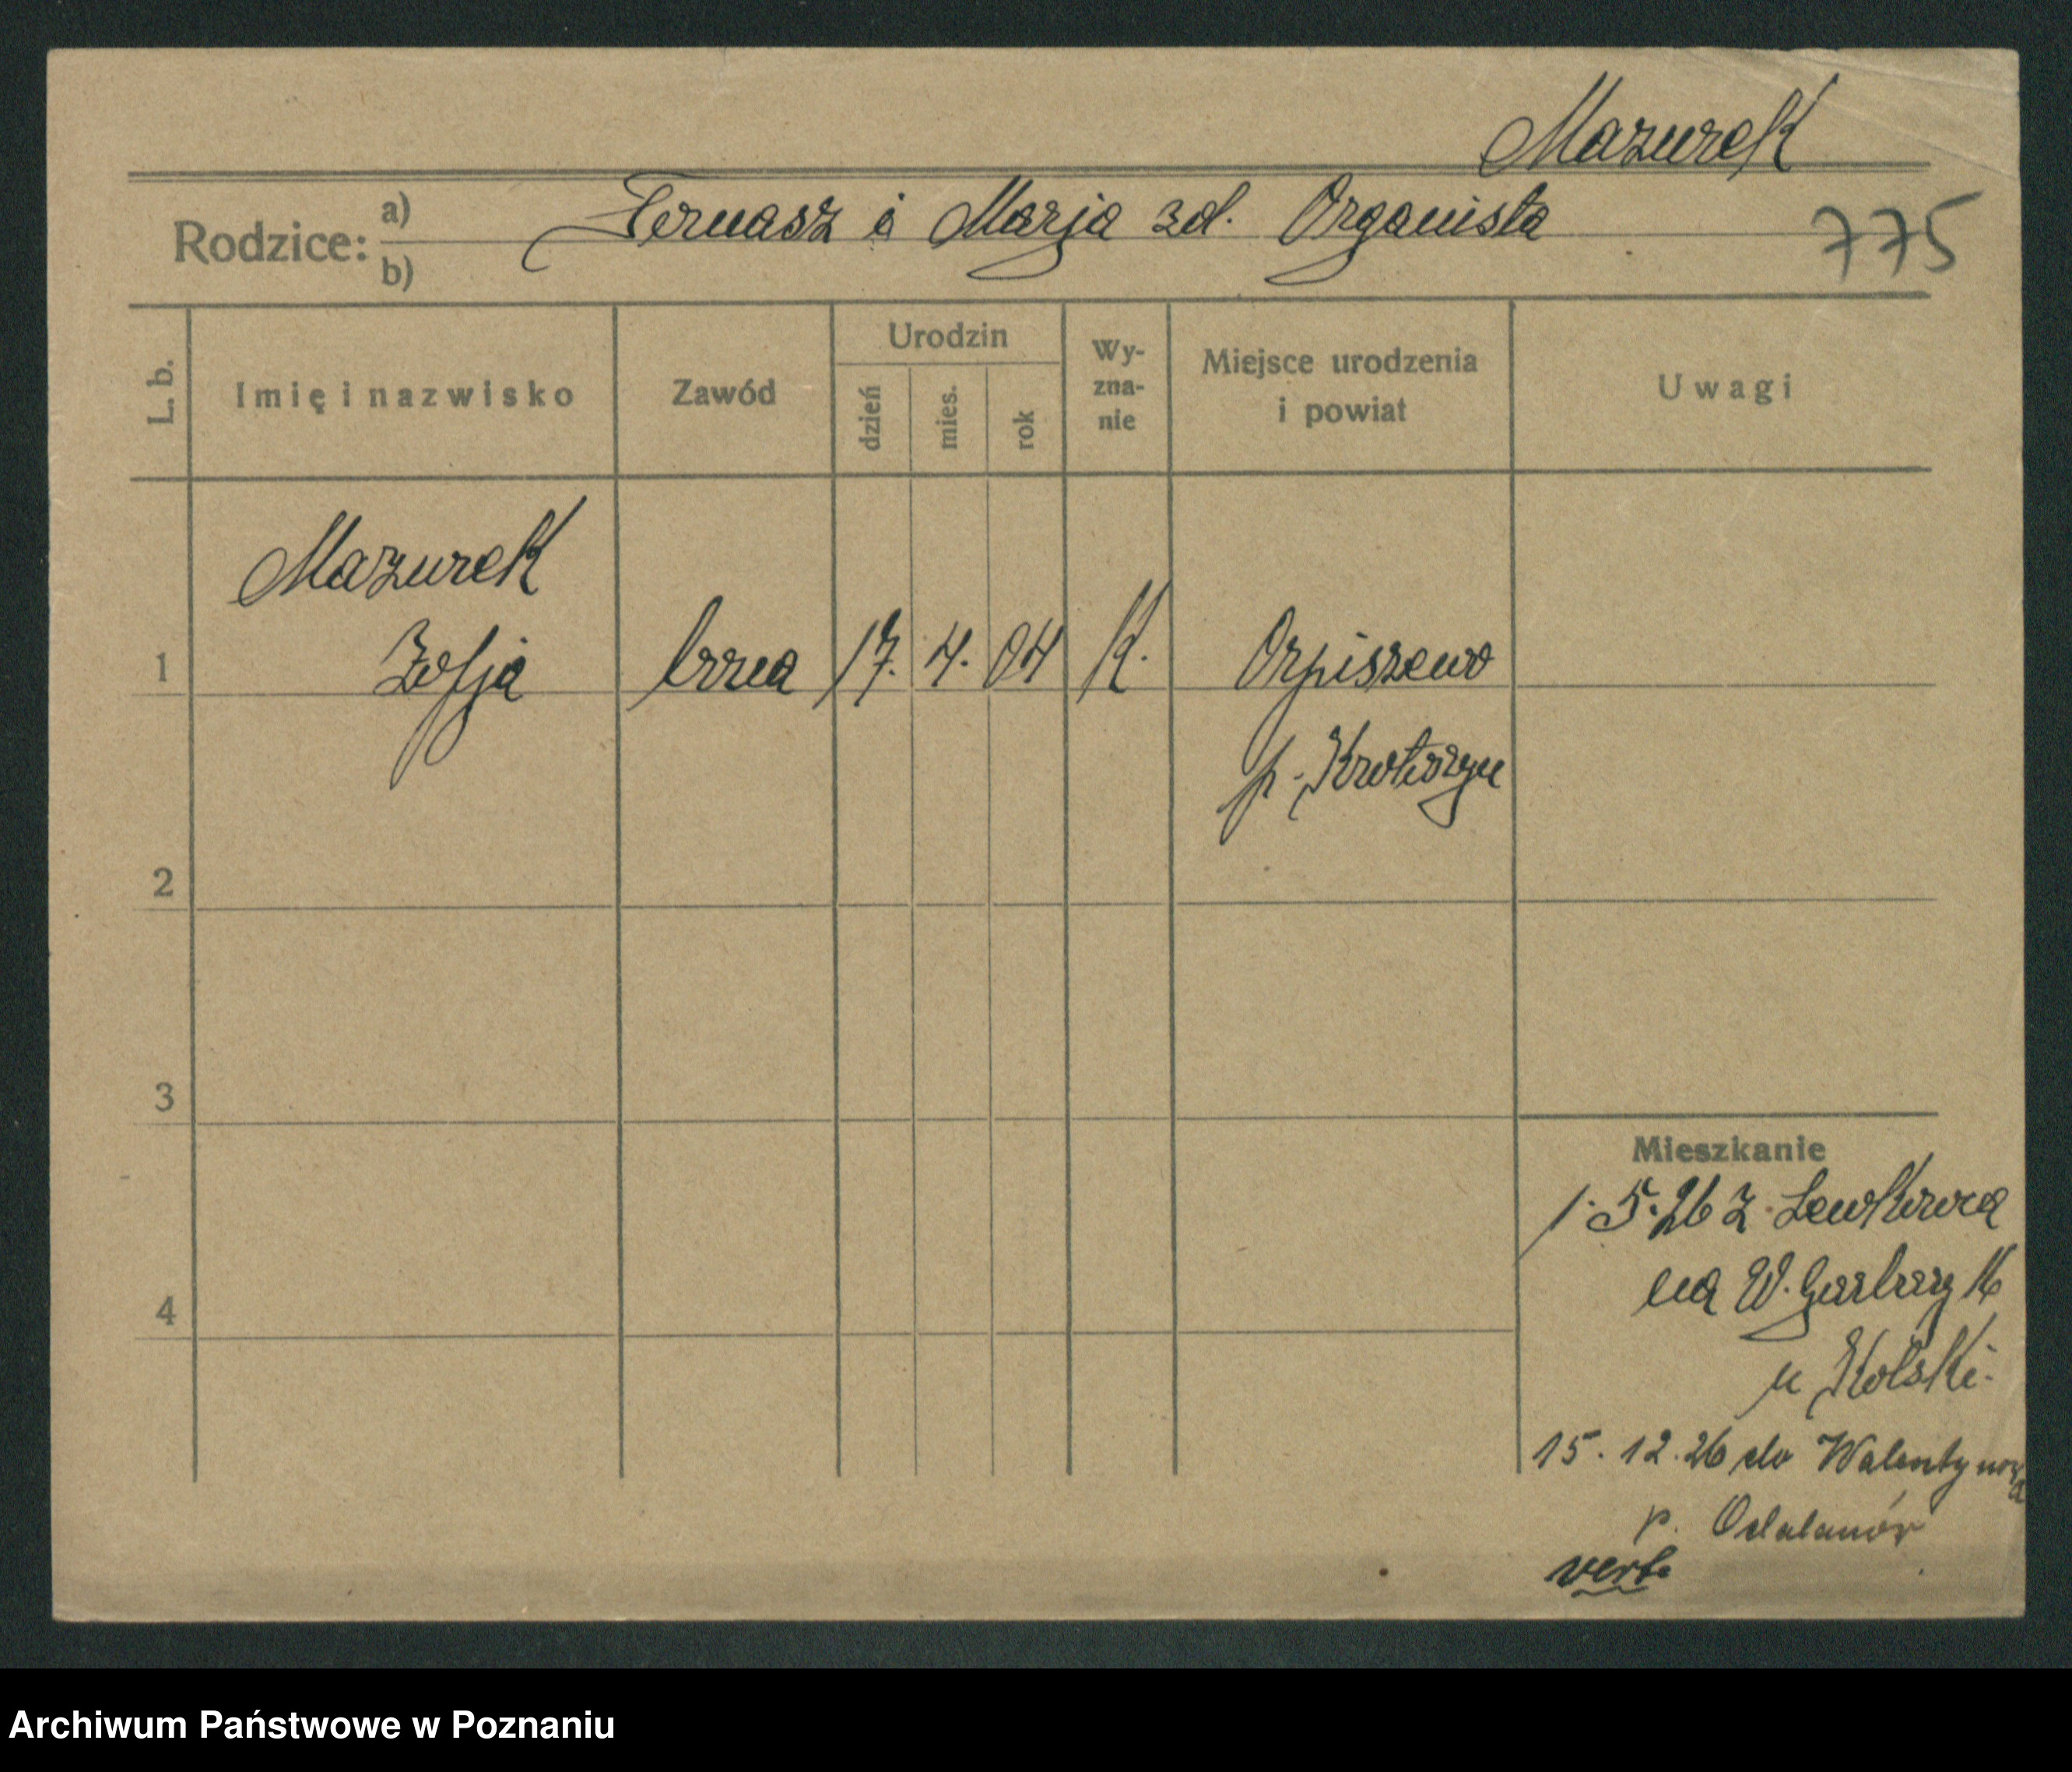 Mazurek
775
Rodzice: a) Tomasz i Marja zd. Organista
b)
L. b. Imię i nazwisko Zawód Urodzin dzień mies. rok Wyznanie Miejsce urodzenia i powiat Uwagi
Mazurek
1 Zofja 17. 4. 04 K. Orpiszewo
p. Krotoszyn
2
3
4
Mieszkanie
1.5.26 z Lewkowca
na W. Garbary 16
u Kolski.
15.12.26 do Walentynowa
p. Odolanów
verte
Archiwum Państwowe w Poznaniu